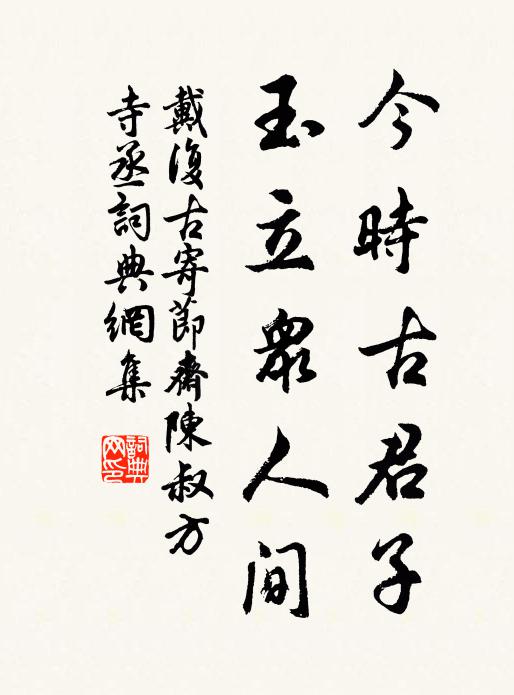 今時古君子
玉立眾人間
戴復古寄節齋陳叔方
寺丞詞典網集
詞典網印